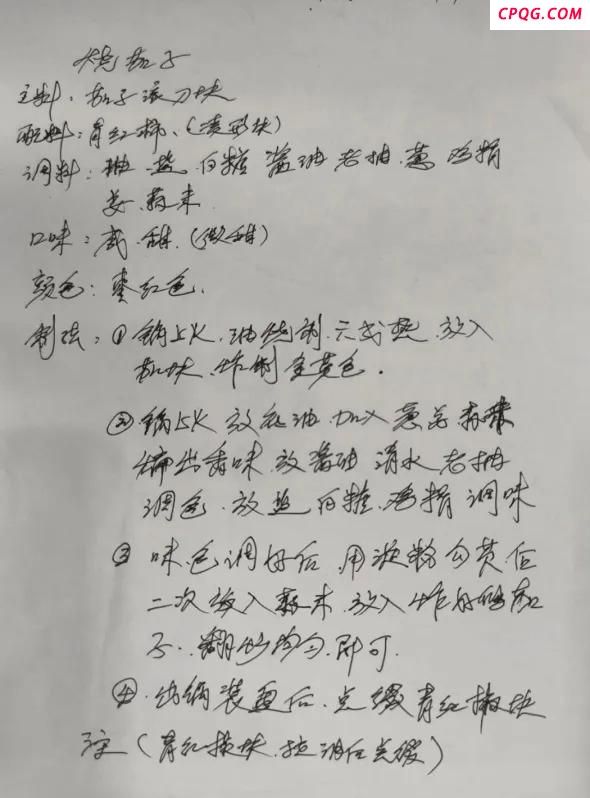 CPQG.COM
烧茄子
主料：茄子滚刀块
配料：青红椒、(菱形块)
调料：盐 白糖 酱油 老抽 葱 鸡精
姜 蒜末
口味：咸 甜.(微甜)
颜色：枣红色.
制法：①锅上火 油烧制 六成热 放入
茄块 炸制金黄色.
②锅上火 放底油 加入葱姜蒜末
煸出香味 放酱油 清水 老抽
调色 放盐 白糖 鸡精 调味
③味色调好后 用淀粉勾芡后
二次放入蒜末 放入炸好的茄
子.翻炒均匀 即可.
④.出锅装盘后 点缀青红椒块
注(青红椒块 拉油后点缀)